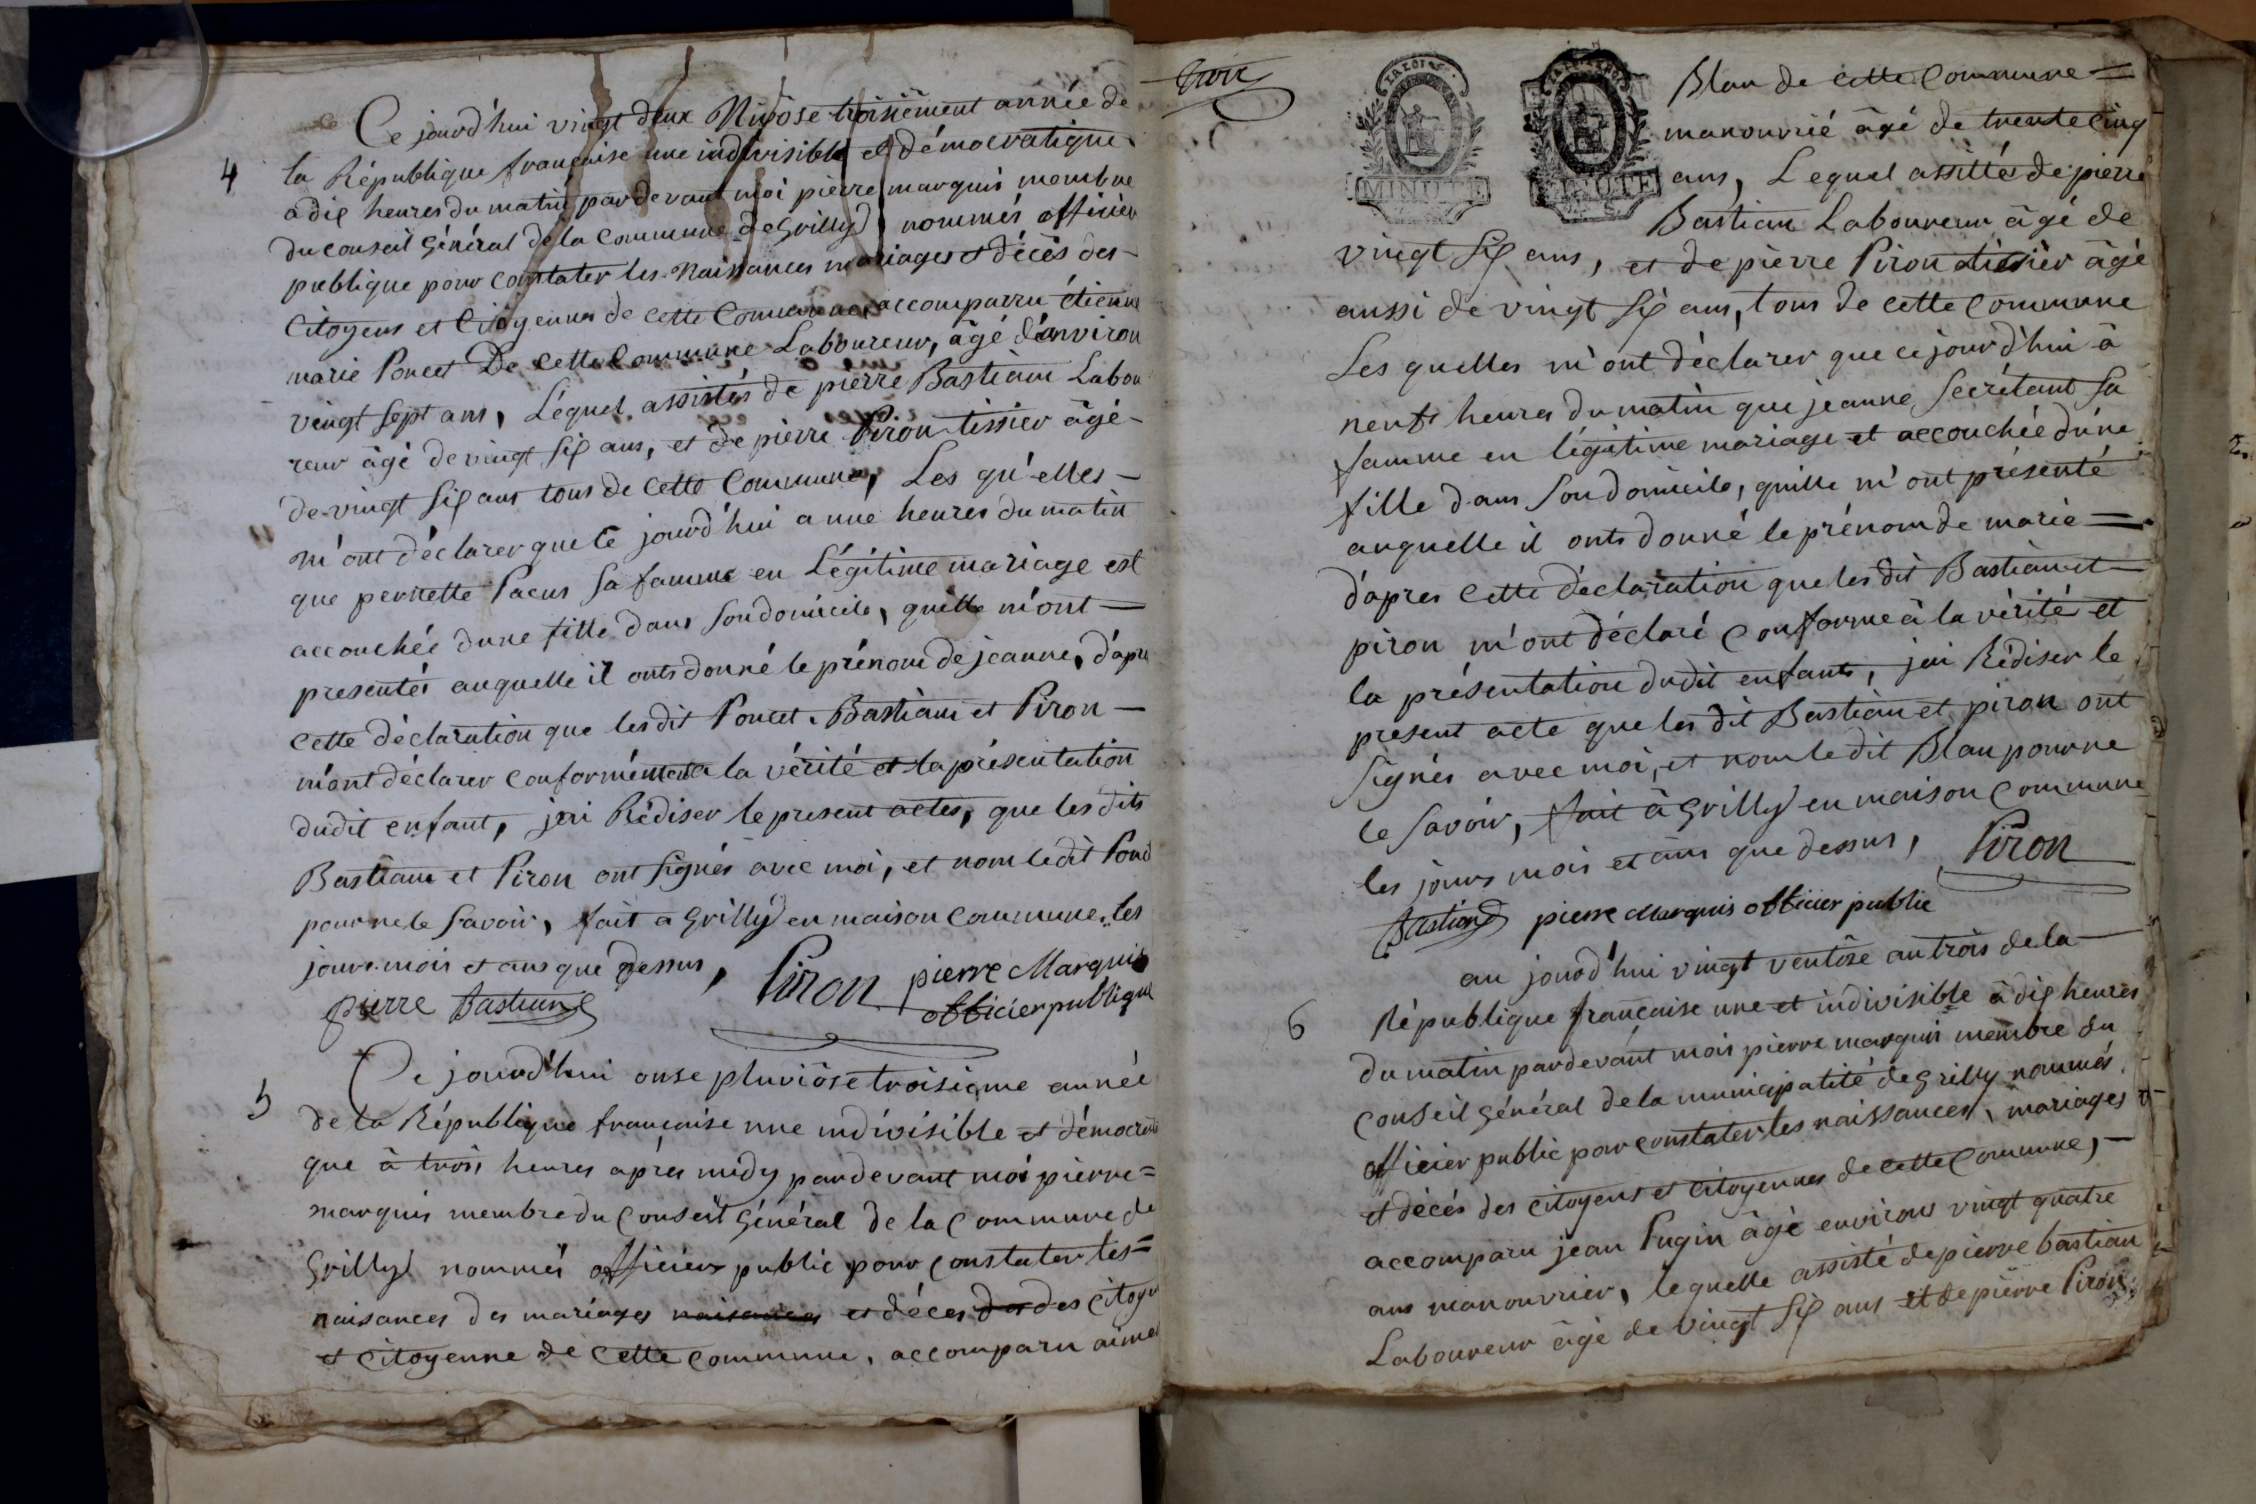 Ce jourd'hui vingt deux Nivôse troisiement année de
4 la République française une indivisible et démocratique
a dix heures du matin pardevant moi pierre marquis membre
du conseil Général de la commune de Grilly nommés officier
publique pour constater les naissances mariages et décès des
Citoyens et Citoyennes de cette Commune, accomparru étienne
marie Poncet De cette Commune Laboureur, âgé d'anviron
vingt sept ans, Léquel assistés de pierre Bastiam Labou
reur âgé de vingt six ans, et de pierre Piron tissier âgé
de vingt six ans tous de cette Commune, Les qu'elles
m'ont déclarer que ce jourd'hui a une heures du matin
que pernette Pacus sa famme en Légitime mariage est
accouchée dune fille dans son domicile, quille m'ont
presentés auquelle il onts donné le prénom de jeanne, d'apre
cette déclaration que lesdit Poncet Bastiam et Piron
m'ont déclarer conformément a la vérité et la présentation
dudit enfant, jai Rédiser le present actes, que les dits
Bastiam et Piron ont signés avec moi, et nom ledit Poncet
pour ne le savoir, fait a Grilly en maison commune, les
jours mois et ans que dessus, Piron pierre Marquis
pierre Bastian officier publique
Ce jourd'hui onse pluviôse troisieme année
5 de la République française une indivisible et démocrati
que à trois heures après midy pardevant moi pierre
marquis membre du conseil Général de la Commune de
Grilly nommés officier public pour constater les
naisances des mariages naisances et déces des des citoyens
et citoyenne de cette commune, accomparu aimé
trois
MINUTE MINUTE
Blan de cette Commune
manouvrié âgé de trente cinq
ans, Lequel assittés de pierre
Bastian Laboureur âgé de
vingt six ans, et de pierre Piron tissier âgé
aussi de vingt six ans, tous de cette Commune
Les quelles m'ont déclarer que ce jourd'hui à
neuf heures du matin que jeanne Secrétant sa
famme en légitime mariage et accouchée dune
fille dans son domicile, quille m'ont présenté
auquelle il onts donné le prénom de marie
d'apres cette déclaration que les dit Bastian et
piron m'ont déclaré conforme à la vérité et
la présentation dudit enfants, jai Rédiser le
present acte que les dit Bastian et piron ont
signés avec moi, et nom le dit Blan pour ne
le savoir, fait à Grilly en maison commune
les jours mois et ans que dessus, Piron
Bastian pierre Marquis officier public
au jourd'hui vingt ventôse an trois de la
6 République française une et indivisible à dix heures
du matin pardevant mois pierre marquis membre du
conseil Général de la municipalité de Grilly nommés
officier public pour constater les naissances, mariages
et décés des citoyens et citoyennes de cette Commune,
accomparu jean Pugin âgé environs vingt quatre
ans manouvrier, lequelle assisté de pierre bastian
Laboureur âgé de vingt six ans et de pierre Piron